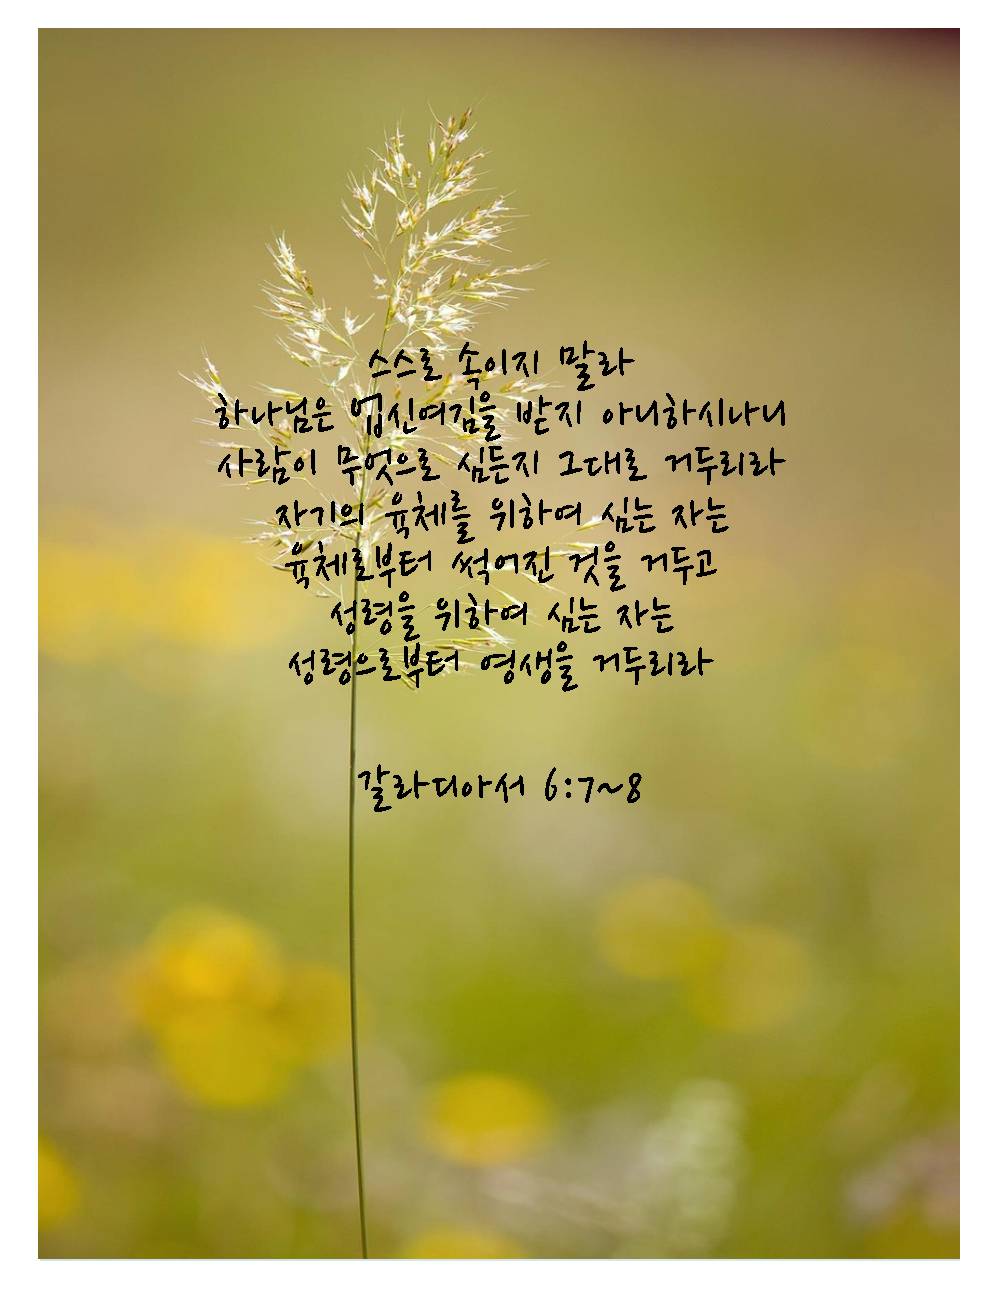 스스로 속이지 말라
하나님은 업신여김을 받지 아니하시나니
사람이 무엇으로 심든지 그대로 거두리라
자기의 육체를 위하여 심는 자는
육체로부터 썩어진 것을 거두고
성령을 위하여 심는 자는
성령으로부터 영생을 거두리라
갈라디아서 6:7~8